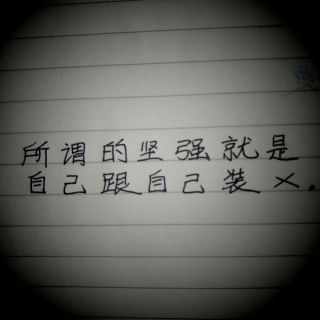 所谓的坚强就是
自己跟自己装X.